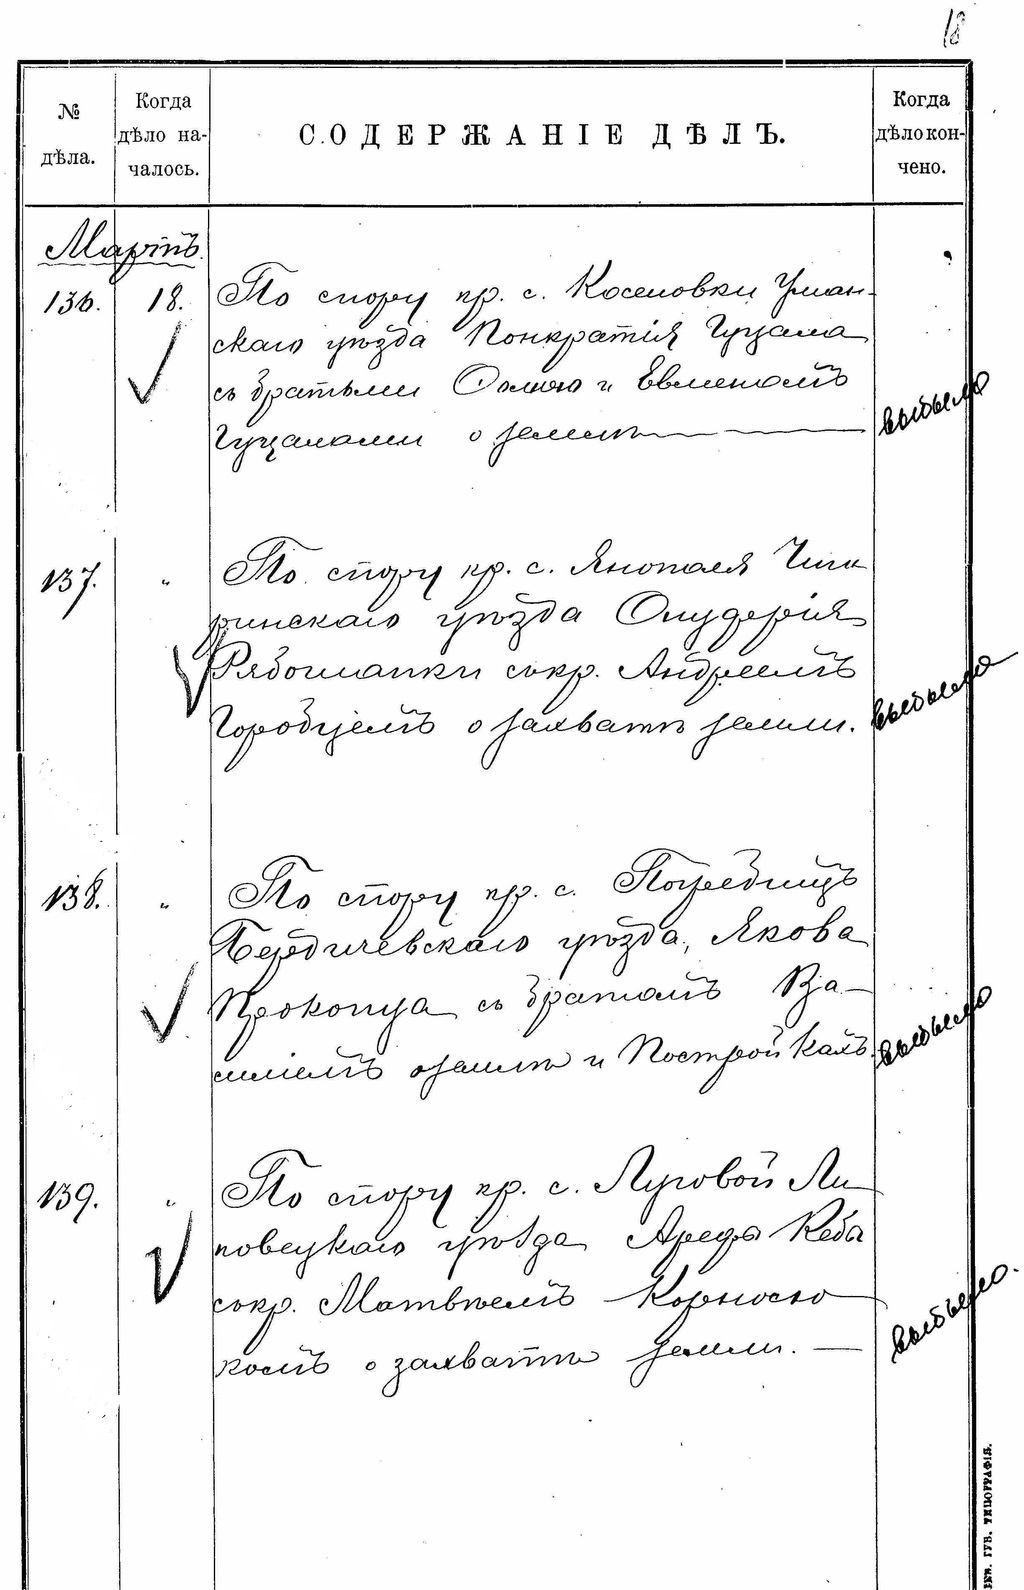 18
№ дѣла.
Когда дѣло началось.
СОДЕРЖАНІЕ ДѢЛЪ.
Когда дѣло кончено.
Мартъ.
136. 18. По спору кр. с. Косеновки Уман-
скаго уѣзда Понкратія Гуцала
съ братьями Фомою и Евменомъ
Гуцалами о землѣ
выбыло
137. " По спору кр. с. Янополя Чиги
ринскаго уѣзда
Рябошапки съ кр. Андреемъ
Городцемъ о захватѣ земли.
выбыло
138. " По спору кр. с. Погребищъ
Бердичевскаго уѣзда, Якова
Прокопца съ братомъ Ва-
силіемъ о землѣ и Постройкахъ
выбыло
139. " По спору кр. с. Луговой Ли
повецкаго уѣзда Арефы Кебы
съ кр. Матвѣемъ
комъ о захватѣ земли. —
выбыло.
ГУБ. ТИПОГРАФІЯ.